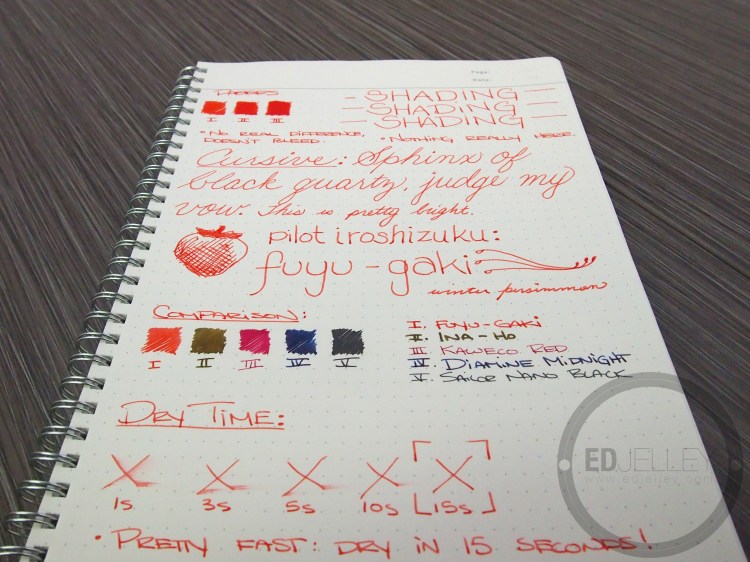 Page:
Date:
PASSES
I II III
— SHADING —
— SHADING —
— SHADING —
• NO REAL DIFFERENCE,
DOESN'T BLEED.
• NOTHING REALLY HERE.
Cursive: Sphinx of
black quartz, judge my
vow. This is pretty bright.
pilot iroshizuku:
fuyu-gaki
winter persimmon
COMPARISON:
I II III IV V
I. FUYU-GAKI
II. INA-HO
III. KAWECO RED
IV. DIAMINE MIDNIGHT
V. SAILOR NANO BLACK
DRY TIME:
X X X X X
1s 3s 5s 10s 15s
• PRETTY FAST: DRY IN 15 SECONDS!
EDJELLEY
www.edjelley.com